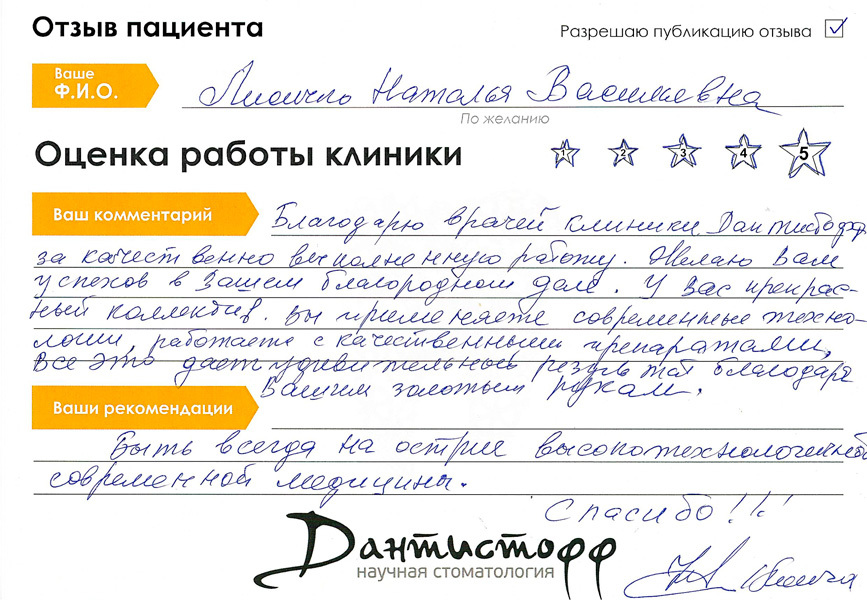 Отзыв пациента
Разрешаю публикацию отзыва
Ваше
Ф.И.О.
Наталья Васильевна
По желанию
Оценка работы клиники
1 2 3 4 5
Ваш комментарий
Благодарю врачей клиники Дантистофф
за качественно выполненную работу. Желаю Вам
успехов в Вашем благородном деле. У Вас прекрас-
ный коллектив. Вы применяете современные техно-
логии, работаете с качественными препаратами,
Все это дает удивительный результат благодаря
Вашим золотым рукам.
Ваши рекомендации
Быть всегда на острие высокотехнологичной
современной медицины.
Спасибо!!!
Дантистофф
научная стоматология